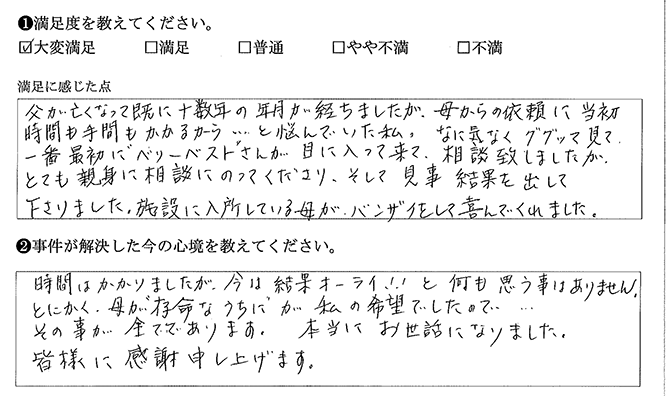 ❶満足度を教えてください。
☑大変満足 □満足 □普通 □やや不満 □不満
満足に感じた点
父が亡くなって既に十数年の年月が経ちましたが、母からの依頼に当初
時間も手間もかかるから…と悩んでいた私。なに気なくググッて見て、
一番最初に"ベリーベスト"さんが目に入って来て、相談致しましたが、
とても親身に相談にのってくださり、そして見事結果を出して
下さりました。施設に入所している母が、バンザイをして喜んでくれました。
❷事件が解決した今の心境を教えてください。
時間はかかりましたが、今は結果オーライ!!と何も思う事はありません。
とにかく、母が存命なうちにが私の希望でしたので……
その事が全てであります。 本当にお世話になりました。
皆様に感謝申し上げます。